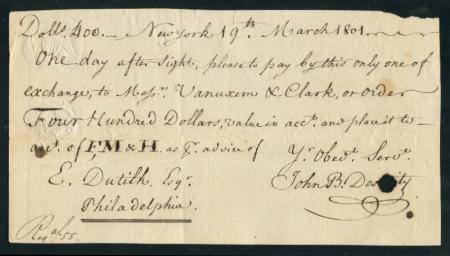 Dolls. 400.— New York 19th. March 1801.
One day after sight, please to pay by this only one of
exchange, to Messrs. Vanuxem & Clark, or order
Four Hundred Dollars, value in acct. and place it to
acct. of F,M & H. as pr. advice of
Yr. Obedt. Servt.
E. Dutilh Esqr. John B.
Philadelphia.